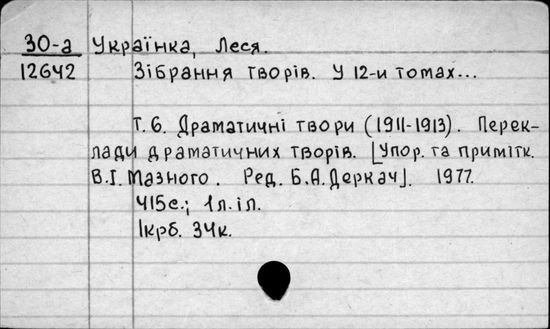 30-а Українка, Леся.
12642 Зібрання творів. У 12-и томах...
Т. 6. Драматичні твори (1911-1913). Перек-
лади драматичних творів. [Упор. та примітк.
В.Г. Мазного. Ред. Б.А. Деркач]. 1977.
415с.; 1л. іл.
1крб. 34к.